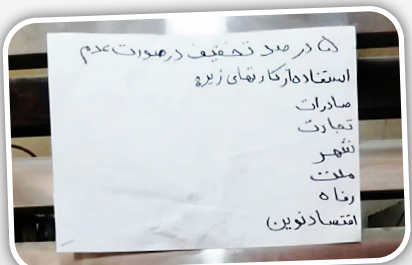 ۵ درصد تخفیف در صورت عدم
استفاده از کارتهای زیر:
صادرات
تجارت
شهر
ملت
رفاه
اقتصاد نوین